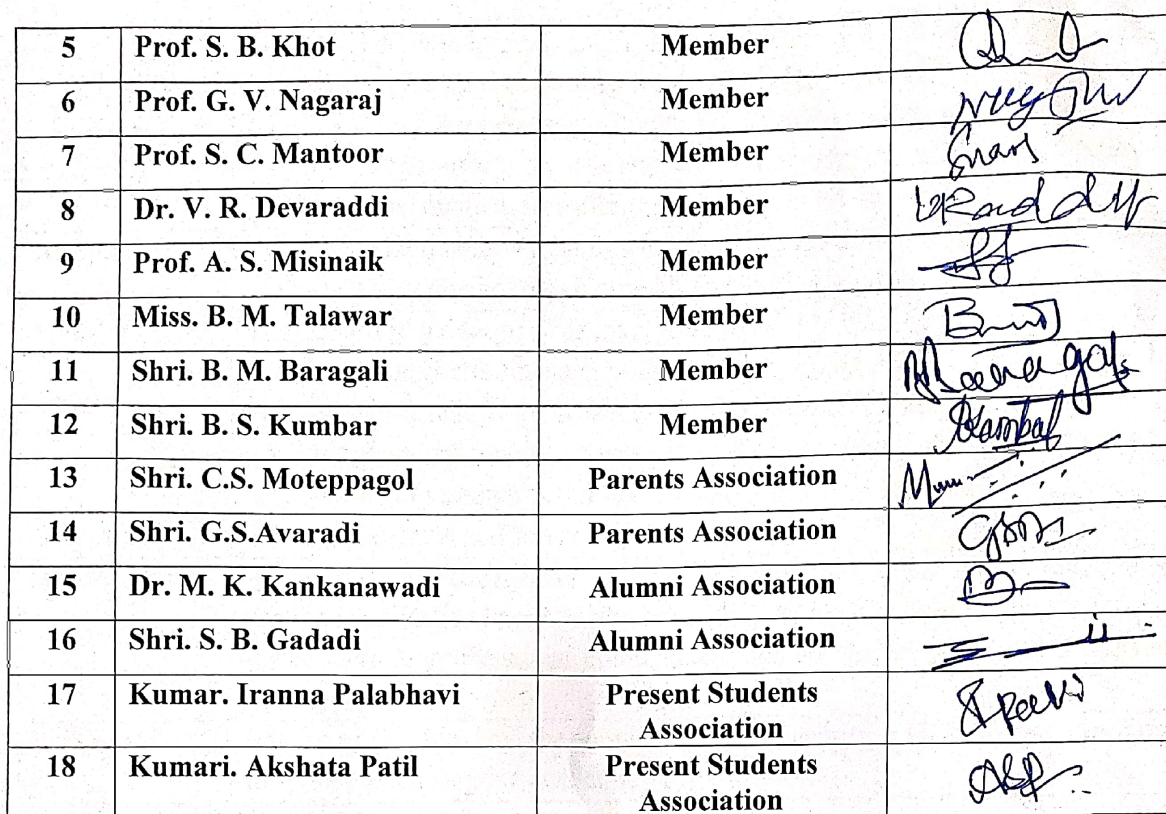 5 Prof. S. B. Khot Member
6 Prof. G. V. Nagaraj Member
7 Prof. S. C. Mantoor Member
8 Dr. V. R. Devaraddi Member
9 Prof. A. S. Misinaik Member
10 Miss. B. M. Talawar Member
11 Shri. B. M. Baragali Member
12 Shri. B. S. Kumbar Member
13 Shri. C.S. Moteppagol Parents Association
14 Shri. G.S.Avaradi Parents Association
15 Dr. M. K. Kankanawadi Alumni Association
16 Shri. S. B. Gadadi Alumni Association
17 Kumar. Iranna Palabhavi Present Students
Association
18 Kumari. Akshata Patil Present Students
Association